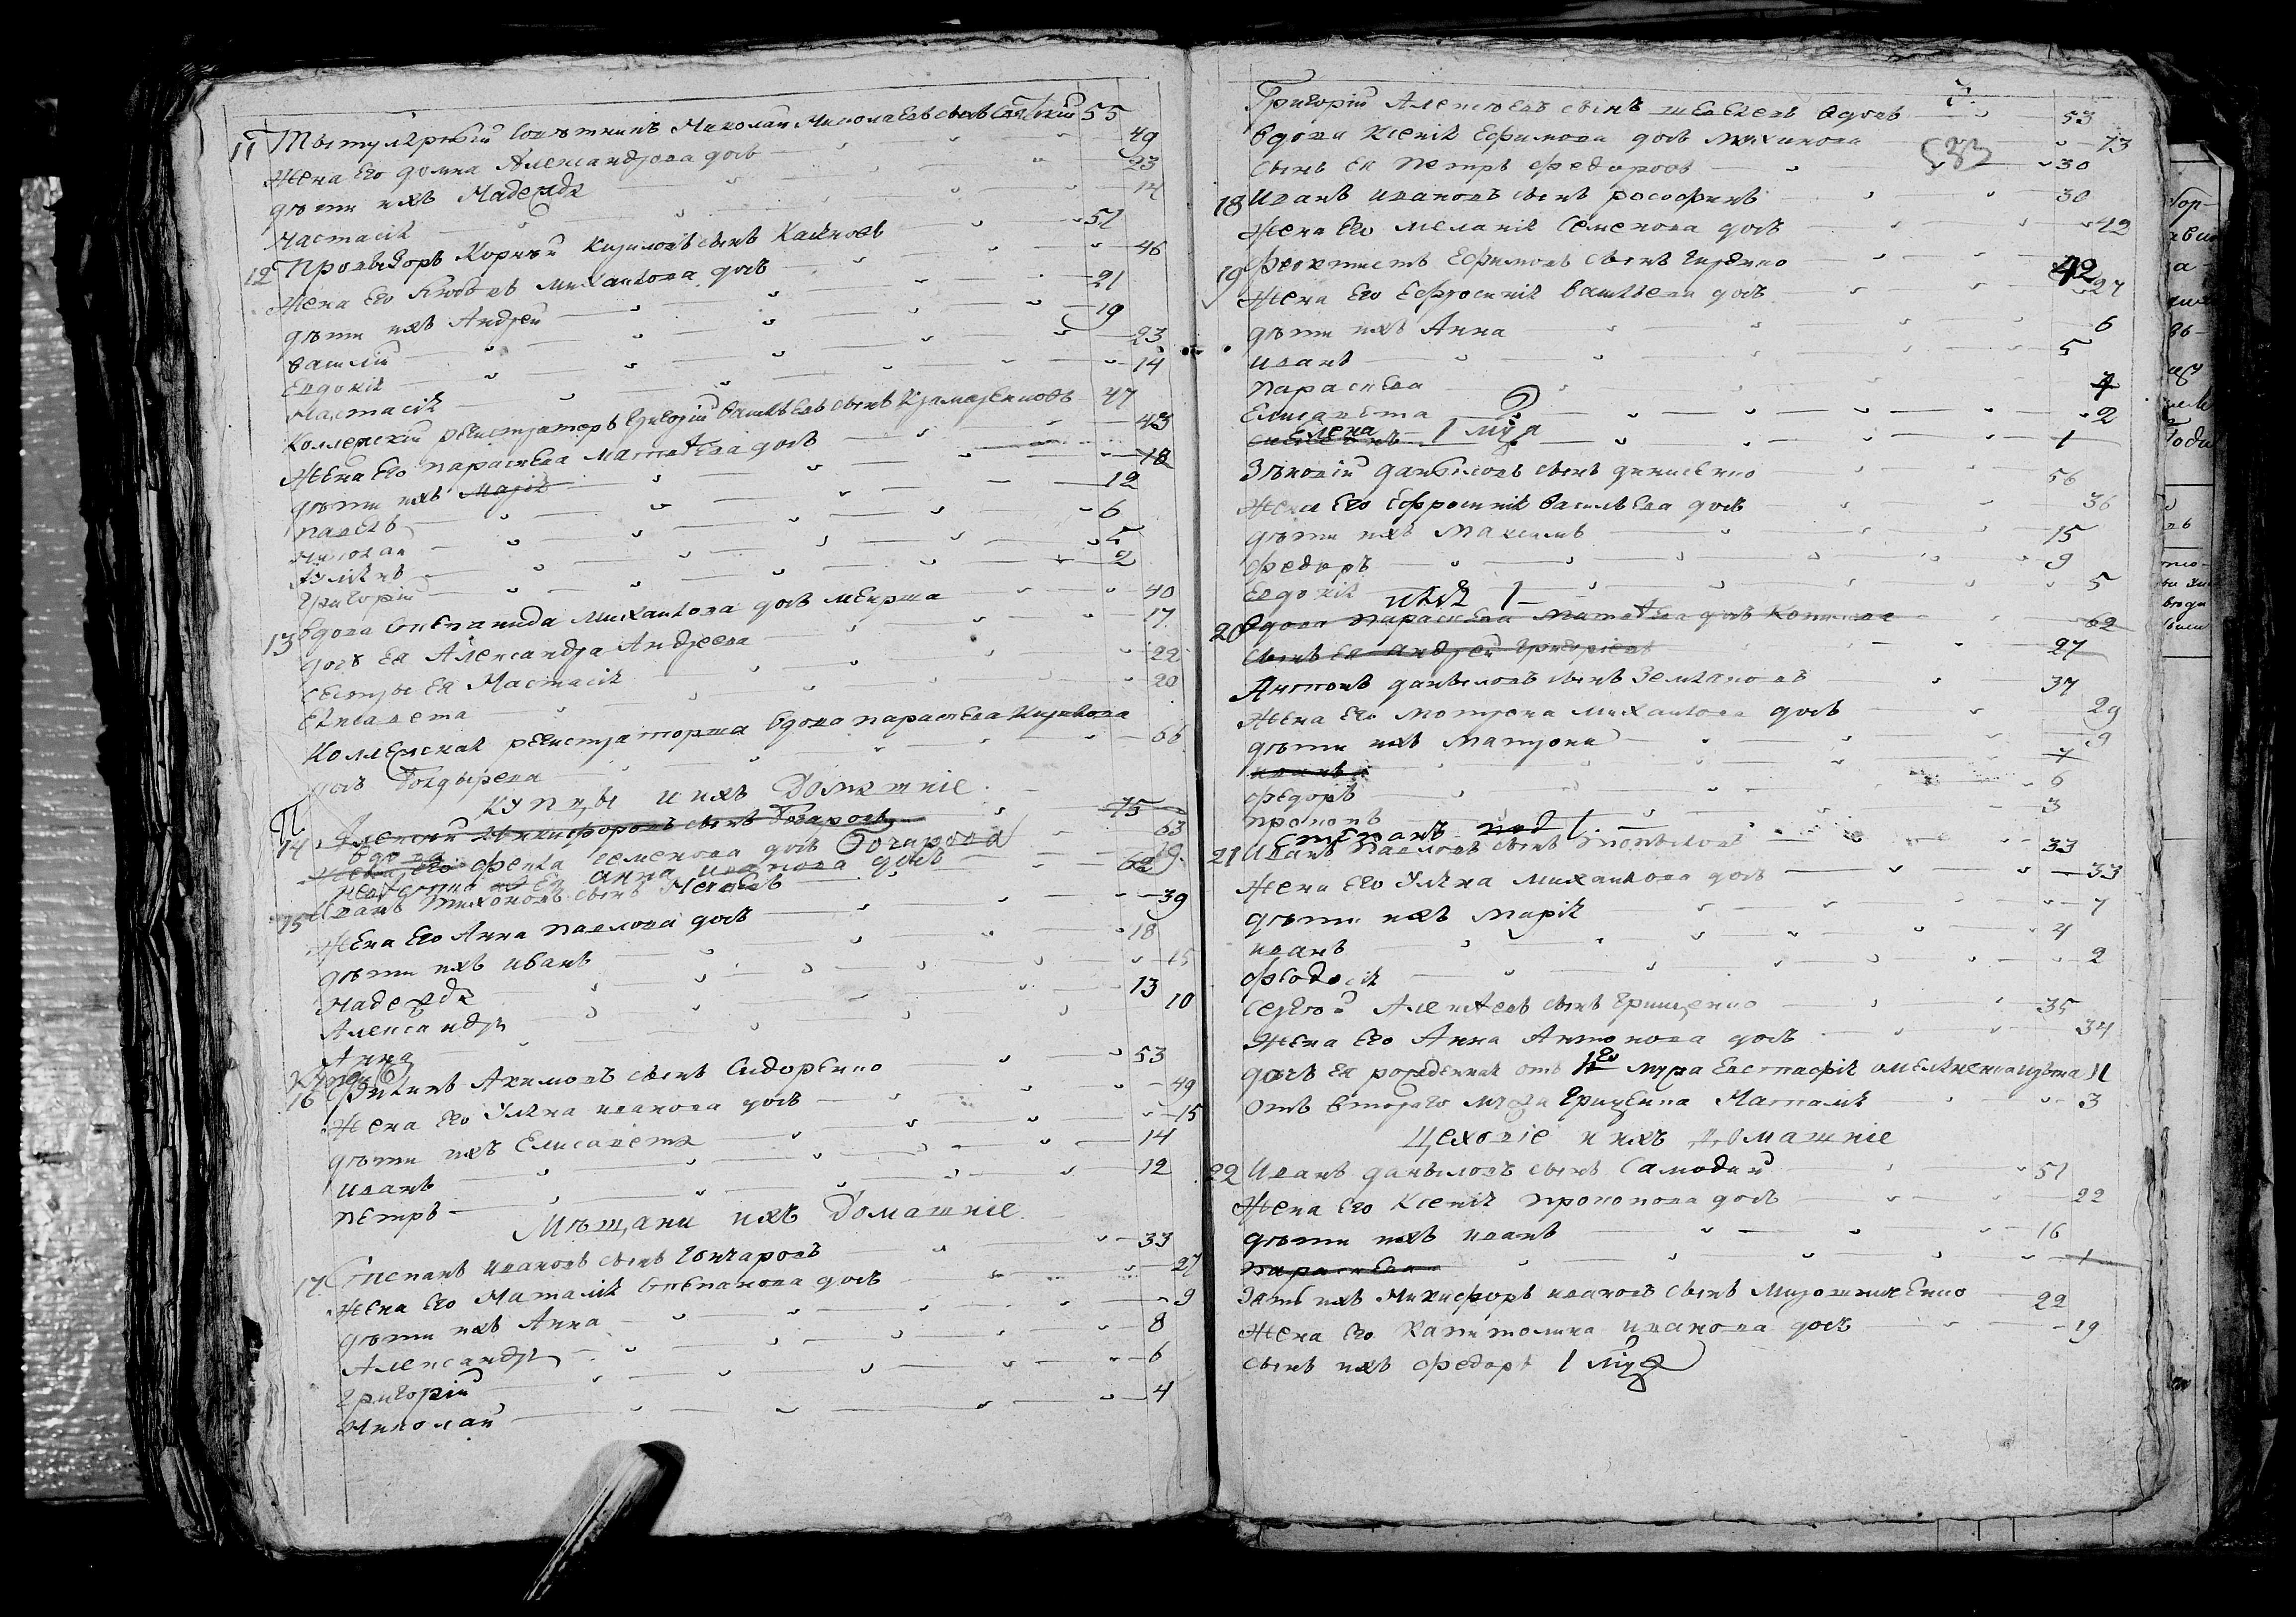 11 Титулярный Советникъ Николай Николаевъ сынъ 55
Жена Его домна Александрова дочь 49
дѣти ихъ Надежда 23
Настасія 14
12 Провизоръ Корнѣй Кириловъ сынъ 51
Жена Его Любовь Михаилова дочь 46
дѣти ихъ Андрей 21
Василій 19
Евдокія 23
Настасія 14
Коллежскій регистраторъ Григорій Васильевъ сынъ 47
Жена Его параскева Матвѣева дочь 43
дѣти ихъ Марія 18
павелъ 12
Николай 6
5
Григорій 2
13 Вдова Степанида Михаилова дочь 40
дочь Ея Александра Андреева 17
сестры Ея Настасія 22
Елисавета 20
Коллежская регистраторша вдова параскева
дочь Болдырева 66
купцы и ихъ Домашніе
14 Алексей Никифоровъ сынъ Гочаровъ 75
вдова Жена Его фекла семенова дочь Гочарова 63
Ея анна иванова дочь 19 62
15 Иванъ тихоновъ сынъ
Жена Его Анна павлова дочь 39
дѣти ихъ иванъ 18
Надежда 15
Александръ 13
Анна 10
16 Акимовъ сынъ Сидоренко 53
Жена Его Уліяна иванова дочь 49
дѣти ихъ Елисавета 15
иванъ 14
петръ 12
Мѣщани ихъ Домашніе
17 Степанъ ивановъ сынъ Гончаровъ 33
Жена Его Наталія Степанова дочь 27
дѣти ихъ Анна 9
Александръ 8
Григорій 6
Николай 4
Григорій Алексѣевъ сынъ шевелевъ вдовъ 53
вдова Ксенія Ефимова дочь 73
сынъ Ея петръ федоровъ 30
18 Иванъ ивановъ сынъ 30
Жена Его меланія Семенова дочь 42
19 феоктистъ Ефимовъ сынъ 42
Жена Его Ефросинія васильева дочь 27
дѣти ихъ Анна 6
иванъ 5
параскева 4
Елисавета 2
Елена 1 1
Зѣновій даниловъ сынъ денисенко 56
Жена Его Ефросинія васильева дочь 36
дѣти ихъ Максимъ 15
федоръ 9
Евдокія 5
1
20 Вдова параскева матвѣева дочь 62
сынъ Ея андрей григоріевъ 27
Антонъ даниловъ сынъ Земляновъ 37
Жена Его мотрона михаилова дочь 29
дѣти ихъ матрона 9
иванъ 7
федоръ 6
прокопъ 3
Степанъ 1
21 Иванъ павловъ сынъ 33
Жена Его Уліяна михаилова дочь 33
дѣти ихъ марія 7
иванъ 4
феодосія 2
Сергѣй Алексѣевъ сынъ Грищенко 35
Жена Его Анна Антонова дочь 34
дочь Ея рожденная отъ 1го мужа Евстафія 11
отъ втораго мужа Грищенка Наталія 3
Цеховіе и ихъ домашніе
22 Иванъ даниловъ сынъ Самодай 51
Жена Его Ксенія прокопова дочь 22
дѣти ихъ иванъ 16
параскева 1
зять ихъ Никифоръ ивановъ сынъ Мирошниченко 22
Жена Его капитолина иванова дочь 19
сынъ ихъ федоръ 1